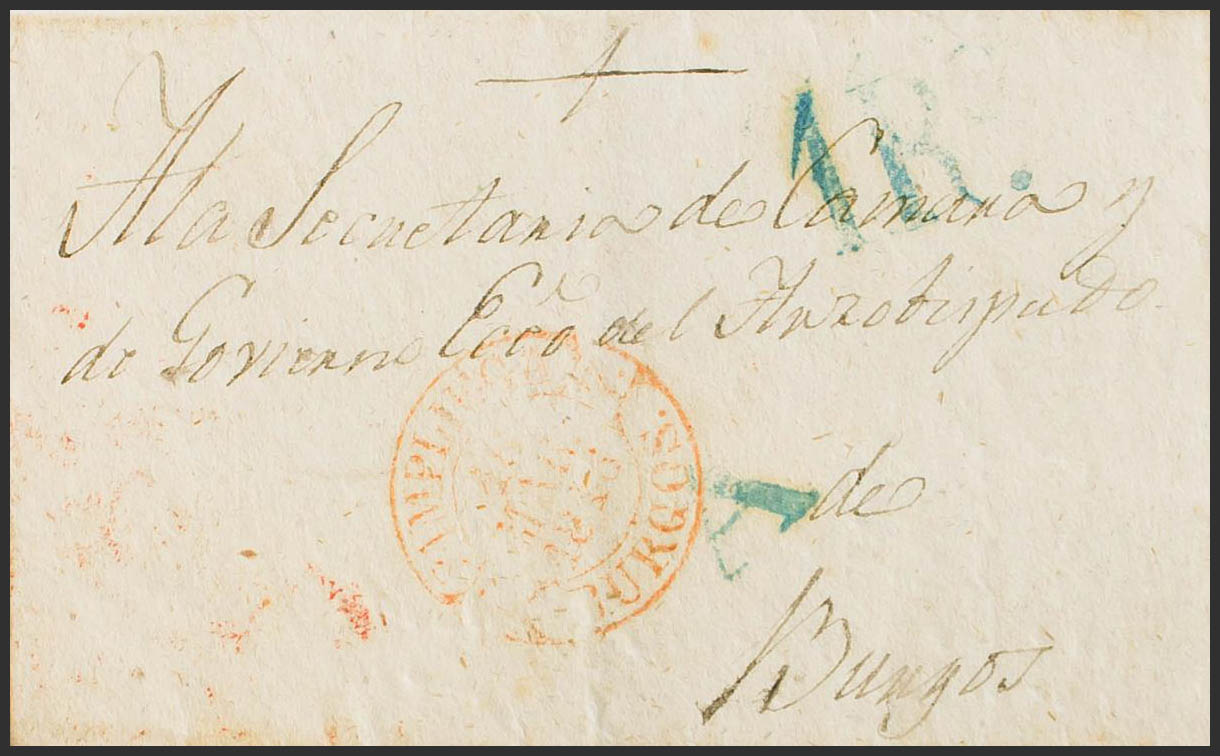 1R.
A la Secretaria de Camara y
de Govierno Ecco del Arzobispado
de
Burgos
CAMPILLO
BURGOS.